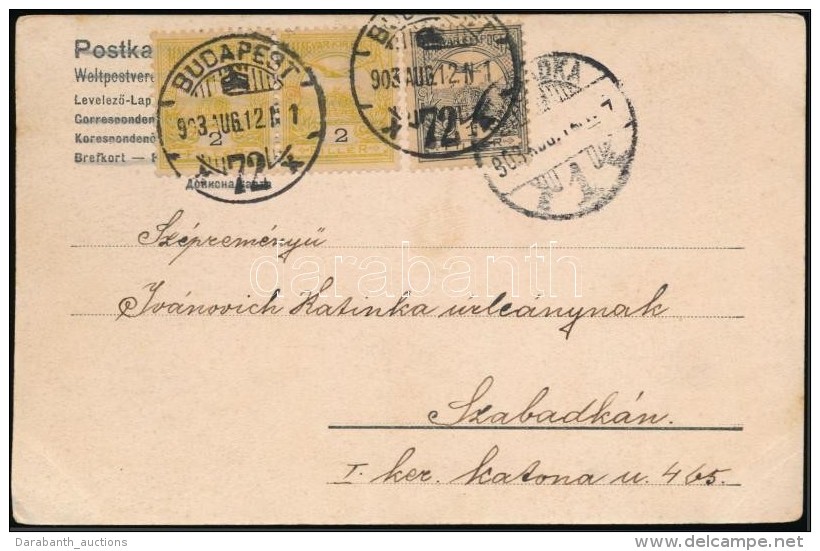 Postka
Weltpostvere
Levelező-Lap
Corresponden
Korespondenč
Brefkort —
BUDAPEST
903 AUG.12.N 1
72
2
2
903 AUG.12.N 1
72
ADKA
Szépreményü
Ivánovich Katinka úrleánynak
Szabadkán.
I. ker. Katona u. 465.
darabanth
Darabanth_auctions
delcampe.net